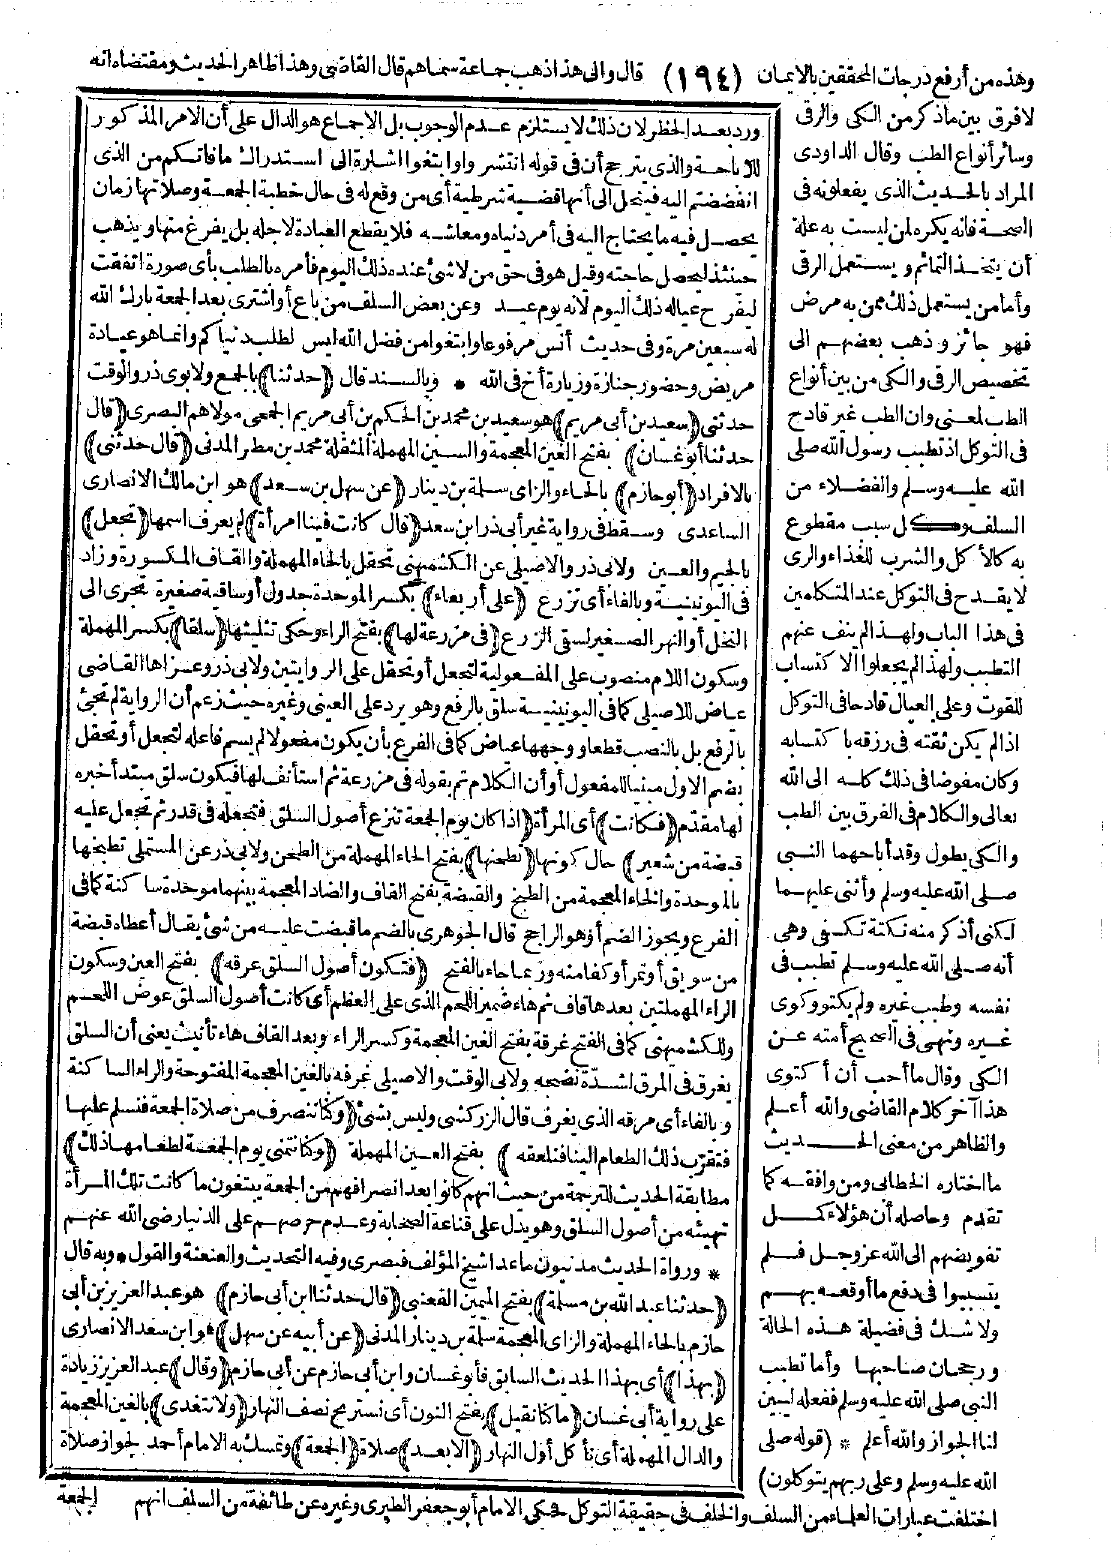 وهذه من أرفع درجات المحققين بالايمان (١٩٤) قال والى هذا ذهب جماعة سماهم قال القاضى وهذا ظاهر الحديث ومقتضاه انه
لا فرق بين ما ذكر من الكى والرقى
وسائر أنواع الطب وقال الداودى
المراد بالحديث الذى يفعلونه فى
الصحة فانه يكره لمن ليست به علة
أن يتخذ التمائم ويستعمل الرقى
وأما من يستعمل ذلك ممن به مرض
فهو جائز وذهب بعضهم الى
تخصيص الرقى والكى من بين أنواع
الطب لمعنى وان الطب غير قادح
فى التوكل اذ تطبب رسول الله صلى
الله عليه وسلم والفضلاء من
السلف وكل سبب مقطوع
به كالأكل والشرب للغذاء والرى
لا يقدح فى التوكل عند المتكلمين
فى هذا الباب ولهذا لم ينف عنهم
التطبب ولهذا لم يجعلوا الاكتساب
للقوت وعلى العيال قادحا فى التوكل
اذا لم يكن ثقته فى رزقه باكتسابه
وكان مفوضا فى ذلك كله الى الله
تعالى والكلام فى الفرق بين الطب
والكى يطول وقد أباحهما النبى
صلى الله عليه وسلم وأثنى عليهما
لكنى أذكر منه نكتة تكفى وهى
أنه صلى الله عليه وسلم تطبب فى
نفسه وطبب غيره ولم يكتو وكوى
غيره ونهى فى الصحيح أمته عن
الكى وقال ما أحب أن أكتوى
هذا آخر كلام القاضى والله أعلم
والظاهر من معنى الحديث
ما اختاره الخطابى ومن وافقه كما
تقدم وحاصله أن هؤلاء كمل
تفويضهم الى الله عز وجل فلم
يتسببوا فى دفع ما أوقعه بهم
ولا شك فى فضيلة هذه الحالة
ورجحان صاحبها وأما تطبب
النبى صلى الله عليه وسلم ففعله ليبين
لنا الجواز والله أعلم * (قوله صلى
الله عليه وسلم وعلى ربهم يتوكلون)
اختلفت عبارات العلماء من السلف والخلف فى حقيقة التوكل فحكى الامام أبو جعفر الطبرى وغيره عن طائفة من السلف انهم
ورد بعد الحظر لان ذلك لا يستلزم عدم الوجوب بل الاجماع هو الدال على أن الامر المذكور
للاباحة والذى يترجح أن فى قوله انتشروا وابتغوا اشارة الى استدراك ما فاتكم من الذى
انفضضتم اليه فينحل الى أنها قضية شرطية أى من وقع له فى حال خطبة الجمعة وصلاتها زمان
يحصل فيه ما يحتاج اليه فى أمر دنياه ومعاشه فلا يقطع العبادة لاجله بل يفرغ منها ويذهب
حينئذ لتحصيل حاجته وقيل هو فى حق من لا شئ عنده ذلك اليوم فأمره بالطلب بأى صورة اتفقت
ليفرح عياله ذلك اليوم لانه يوم عيد وعن بعض السلف من باع أو اشترى بعد الجمعة بارك الله
له سبعين مرة وفى حديث أنس مرفوعا وابتغوا من فضل الله ليس لطلب دنياكم وانما هو عيادة
مريض وحضور جنازة وزيارة أخ فى الله * وبالسند قال (حدثنا) بالجمع ولابوى ذر والوقت
حدثنى (سعيد بن أبى مريم) هو سعيد بن محمد بن الحكم بن أبى مريم الجمحى مولاهم البصرى (قال
حدثنا أبو غسان) بفتح الغين المعجمة والسين المهملة المثقلة محمد بن مطر المدنى (قال حدثنى)
بالافراد (أبو حازم) بالحاء والزاى سلمة بن دينار (عن سهل بن سعد) هو ابن مالك الانصارى
الساعدى وسقط فى رواية غير أبى ذر ابن سعد (قال كانت فينا امرأة) لم يعرف اسمها (تجعل)
بالجيم والعين ولابى ذر والاصيلى عن الكشميهنى تحقل بالحاء المهملة والقاف المكسورة وزاد
فى اليونينية وبالفاء أى تزرع (على أربعاء) بكسر الموحدة جدول أو ساقية صغيرة تجرى الى
النخل أو النهر الصغير لسقى الزرع (فى مزرعة لها) بفتح الراء وحكى تثليثها (سلقا) بكسر المهملة
وسكون اللام منصوب على المفعولية لتجعل أو تحقل على الروايتين ولابى ذر وعزاها القاضى
عياض للاصيلى كما فى اليونينية سلق بالرفع وهو يرد على العينى وغيره حيث زعم أن الرواية لم تجئ
بالرفع بل بالنصب قطعا ووجهها عياض كما فى الفرع بأن يكون مفعولا لم يسم فاعله لتجعل أو تحقل
بضم الاول مبنيا للمفعول أو أن الكلام تم بقوله فى مزرعة ثم استأنف لها فيكون سلق مبتدأ خبره
لها مقدم (فكانت) أى المرأة (اذا كان يوم الجمعة تنزع أصول السلق فتجعله فى قدر ثم تجعل عليه
قبضة من شعير) حال كونها (تطحنها) بفتح الحاء المهملة من الطحن ولابى ذر عن المستملى تطبخها
بالموحدة والخاء المعجمة من الطبخ والقبضة بفتح القاف والضاد المعجمة بينهما موحدة ساكنة كما فى
الفرع ويجوز الضم أو هو الراجح قال الجوهرى بالضم ما قبضت عليه من شئ يقال أعطاه قبضة
من سويق أو تمر أو كفا منه وربما جاء بالفتح (فتكون أصول السلق عرقه) بفتح العين وسكون
الراء المهملتين بعدها قاف ثم هاء ضمير اللحم الذى على العظم أى كانت أصول السلق عوض اللحم
وللكشميهنى كما فى الفتح غرقة بفتح الغين المعجمة وكسر الراء وبعد القاف هاء تأنيث يعنى أن السلق
يغرق فى المرق لشدة نضجه ولابى الوقت والاصيلى غرفه بالغين المعجمة المفتوحة والراء الساكنة
وبالفاء أى مرقه الذى يغرف قال الزركشى وليس بشئ (وكنا ننصرف من صلاة الجمعة فنسلم عليها
فتقرب ذلك الطعام الينا فنلعقه) بفتح العين المهملة (وكنا نتمنى يوم الجمعة لطعامها ذلك)
مطابقة الحديث للترجمة من حيث انهم كانوا بعد انصرافهم من الجمعة يبتغون ما كانت تلك المرأة
تهيئه من أصول السلق وهو يدل على قناعة الصحابة وعدم حرصهم على الدنيا رضى الله عنهم
* ورواة الحديث مدنيون ما عدا شيخ المؤلف فبصرى وفيه التحديث والعنعنة والقول * وبه قال
(حدثنا عبد الله بن مسلمة) بفتح الميمين القعنبى (قال حدثنا ابن أبى حازم) هو عبد العزيز بن أبى
حازم بالحاء المهملة والزاى المعجمة سلمة بن دينار المدنى (عن أبيه عن سهل) هو ابن سعد الانصارى
(بهذا) أى بهذا الحديث السابق فأبو غسان وابن أبى حازم عن أبى حازم (وقال) عبد العزيز زيادة
على رواية أبى غسان (ما كنا نقيل) بفتح النون أى نستريح نصف النهار (ولا نتغدى) بالغين المعجمة
والدال المهملة أى نأكل أول النهار (الا بعد) صلاة (الجمعة) وتمسك به الامام أحمد لجواز صلاة
الجمعة